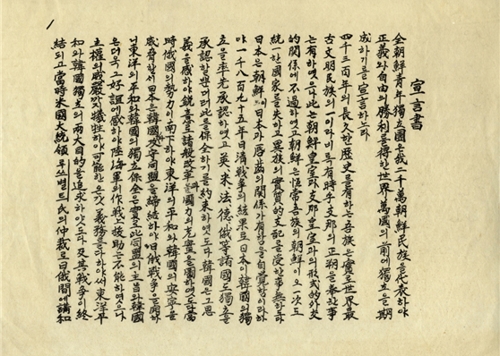 1
宣言書
全朝鮮青年獨立團은我二千萬朝鮮民族을代表하야
正義와自由의勝利를得한世界萬國의前에獨立을期
成하기를宣言하노라
四千三百年의長久한歷史를有하는吾族은實로世界最
古文明民族의一이라비록有時乎支那의正朔을奉한事
는有하엿으나此는朝鮮皇室과支那皇室과의形式的外交
的關係에不過하엿고朝鮮은恒常吾族의朝鮮이오一次도
統一한國家를失하고異族의實質的支配를受한事無하도다
日本은朝鮮이日本과唇齒의關係가有함을自覺함이라하
야一千八百九十五年日淸戰爭의結果로日本이韓國의獨
立을率先承認하엿고英、米、法、德、俄等諸國도獨立을
承認할뿐더러此를保全하기를約束하엿도다韓國은그恩
義를感하야銳意로諸般改革과國力의充實을圖하엿도다當
時俄國의勢力이南下하야東洋의平和와韓國의安寧을
威脅할새日本은韓國과攻守同盟을締結하야日俄戰爭을開하
니東洋의平和와韓國의獨立保全은實로此同盟의主旨와韓國
은더욱그好誼에感하야陸海軍의作戰上援助는不能하엿으나
主權의威嚴까지犧牲하야可能한온갖義務를다하야써東洋平
和와韓國獨立의兩大目的을追求하얏도다及其戰爭이終
結되고當時米國大統領루쓰벨트氏의仲裁로日俄間에講和